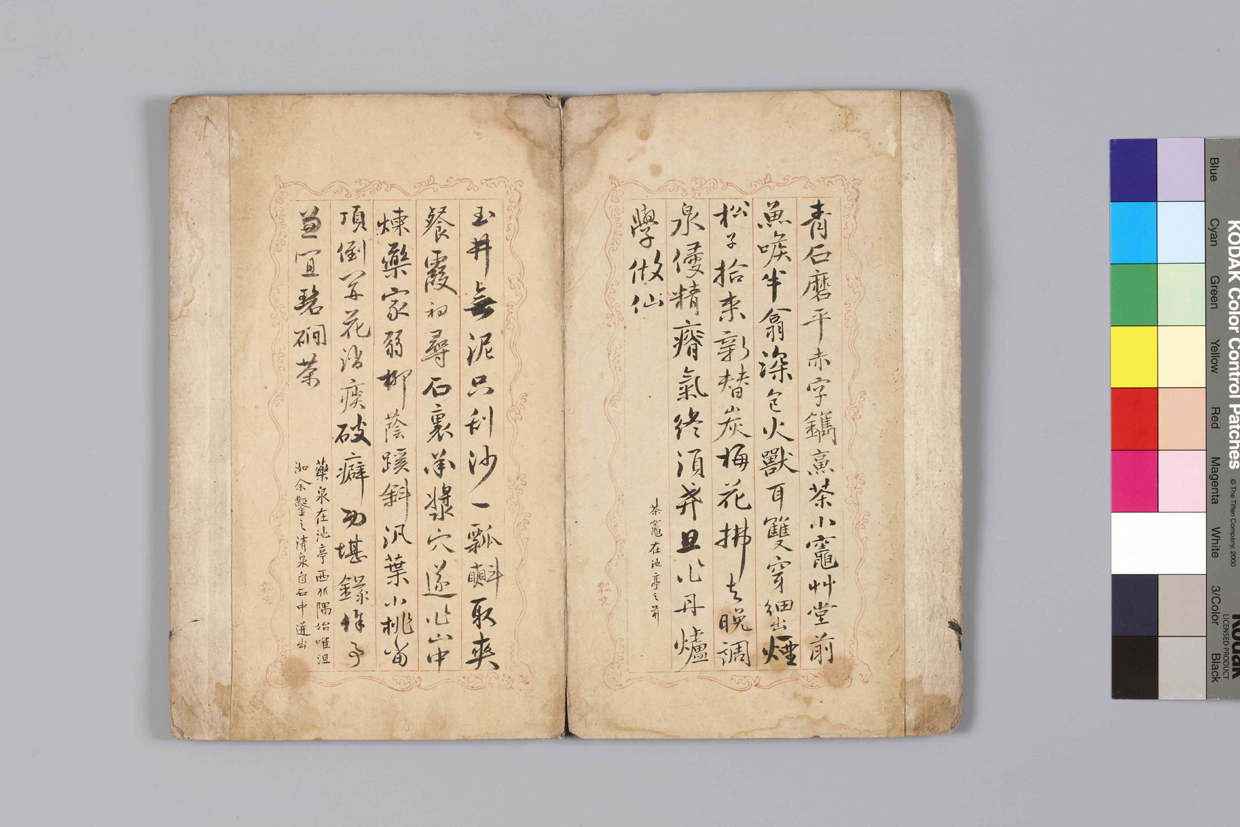 青石磨平赤字鐫烹茶小竈艸堂前
魚喉半翕深包火獸耳雙穿細出煙
松子拾來新替炭梅花拂去晚調
泉侵精瘠氣終須弃且作丹爐
學做仙
茶竈在池亭之前
玉井無泥只刮沙一瓢㪺取爽
餐霞初尋石裏承漿穴遂作山中
煉藥家弱柳蔭蹊斜汎葉小桃當
頂倒開花消痰破癖功堪錄餘事
兼宜碧磵茶
藥泉在池亭西北隅始唯沮
洳余鑿之清泉自石中迸出
KODAK Color Control Patches
© The Tiffen Company, 2000
Kodak
LICENSED PRODUCT
Blue
Cyan
Green
Yellow
Red
Magenta
White
3/Color
Black